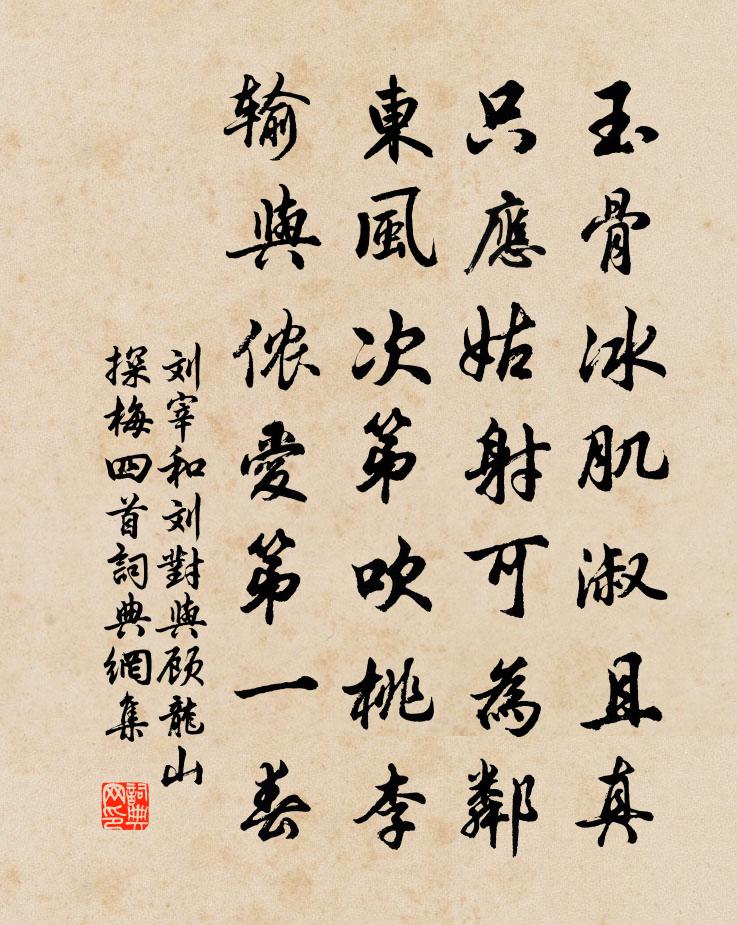 玉骨冰肌淑且真
只應姑射可為鄰
東風次第吹桃李
輸與儂愛第一春
刘宰和刘對與顾龍山
探梅四首詞典網集
詞典网印